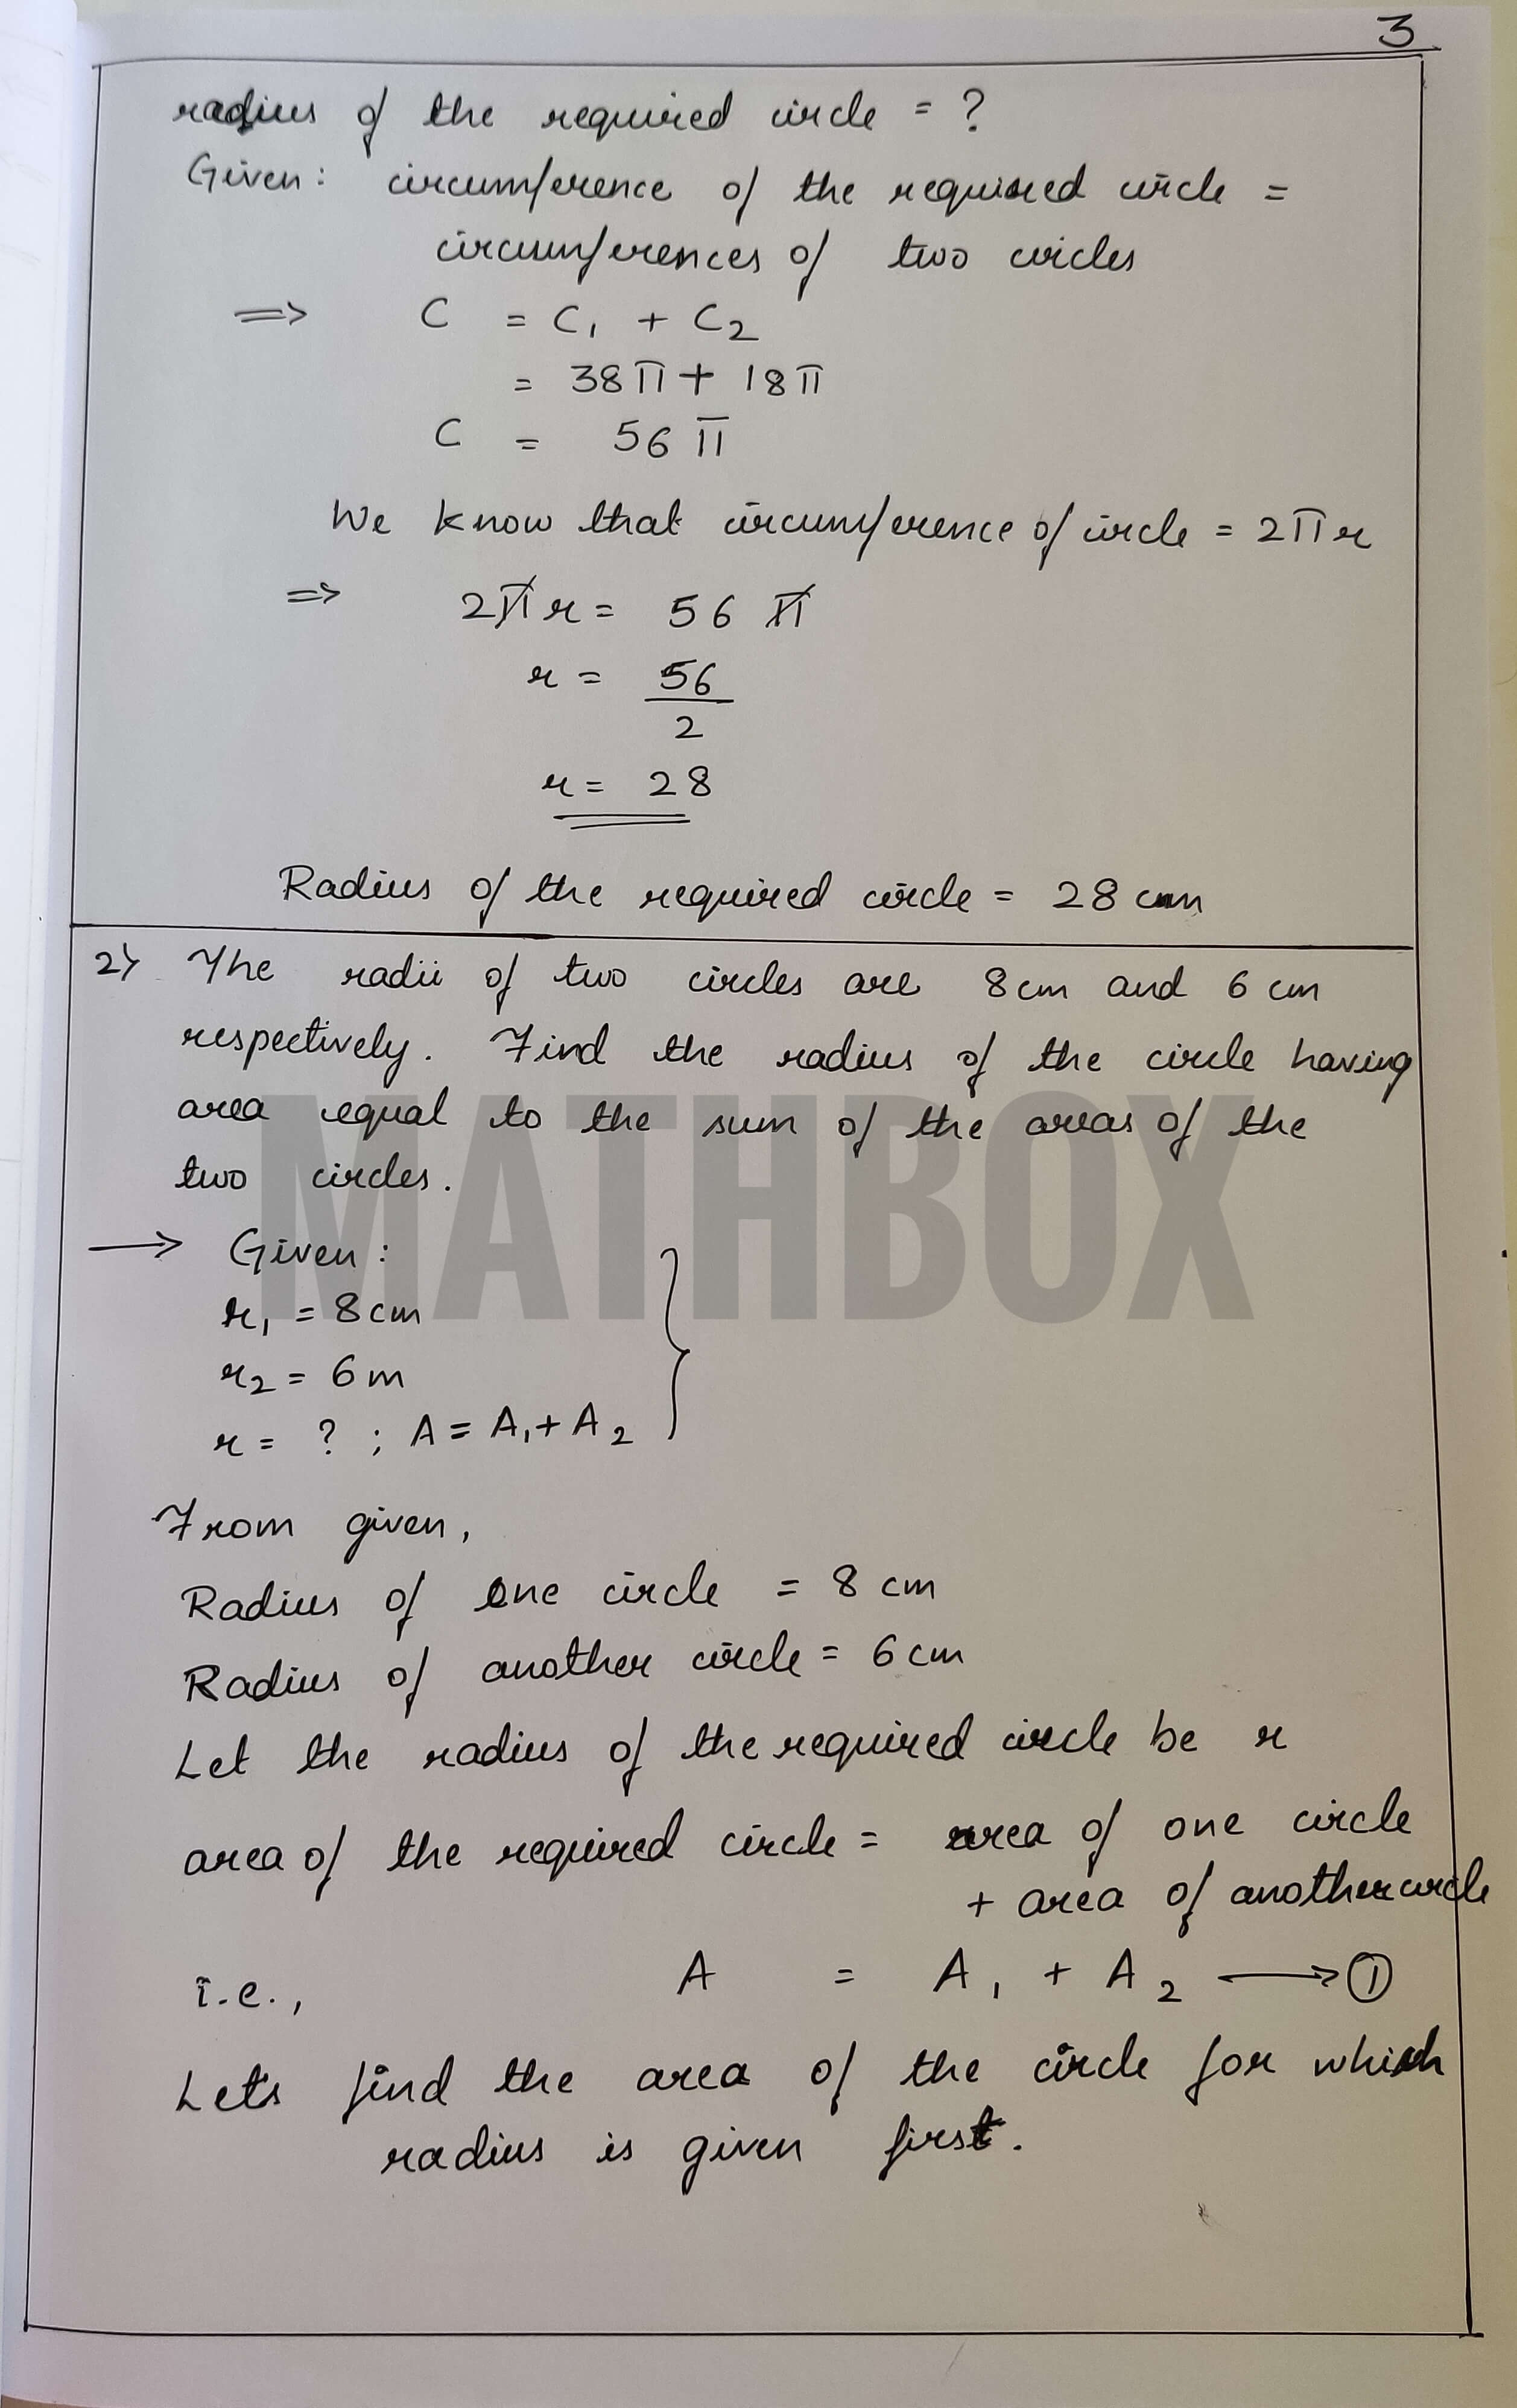 3
radius of the required circle = ?
Given: circumference of the required circle =
circumferences of two circles
⇒ C = C₁ + C₂
= 38π + 18π
C = 56π
We know that circumference of circle = 2πr
⇒ 2πr = 56π
r = 56
2
r = 28
Radius of the required circle = 28 cm
2) The radii of two circles are 8cm and 6 cm
respectively. Find the radius of the circle having
area equal to the sum of the areas of the
two circles.
MATHBOX
→ Given:
r₁ = 8cm
r₂ = 6m
r = ? ; A = A₁ + A₂
From given,
Radius of one circle = 8 cm
Radius of another circle = 6 cm
Let the radius of the required circle be r
area of the required circle = area of one circle
+ area of another circle
i.e., A = A₁ + A₂ → ①
Let's find the area of the circle for which
radius is given first.